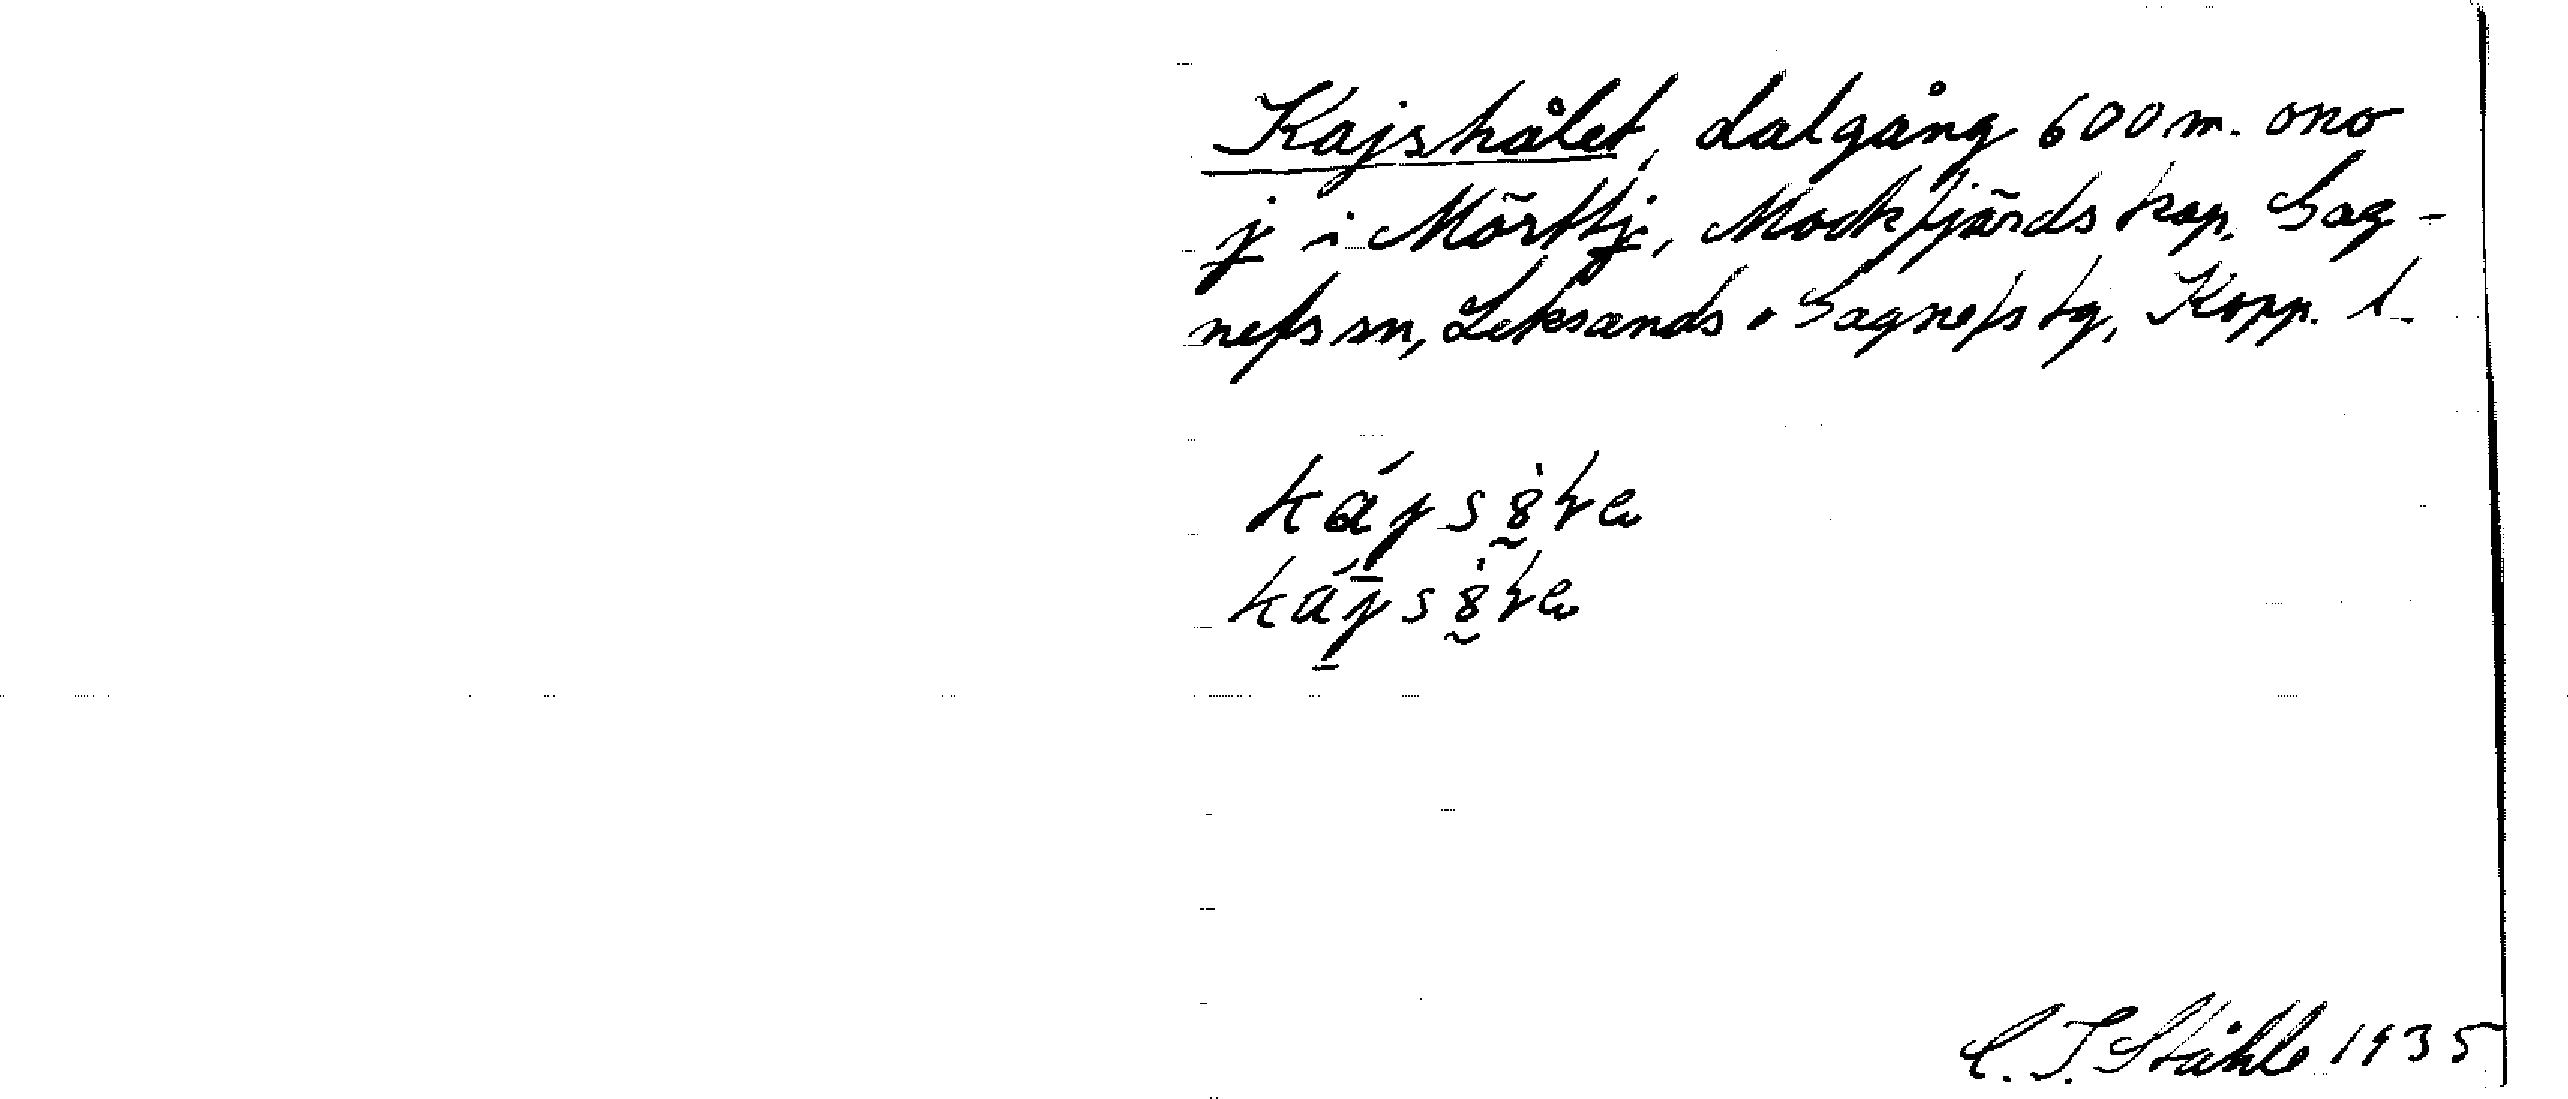 Kajshålet, dalgång 600 m. ono
j i Mörttj, Mockfjärds kap. Gag-
nefs sn, Leksands o Gagnefs tg, Kopp. l.
C. I. Ståhle 1935